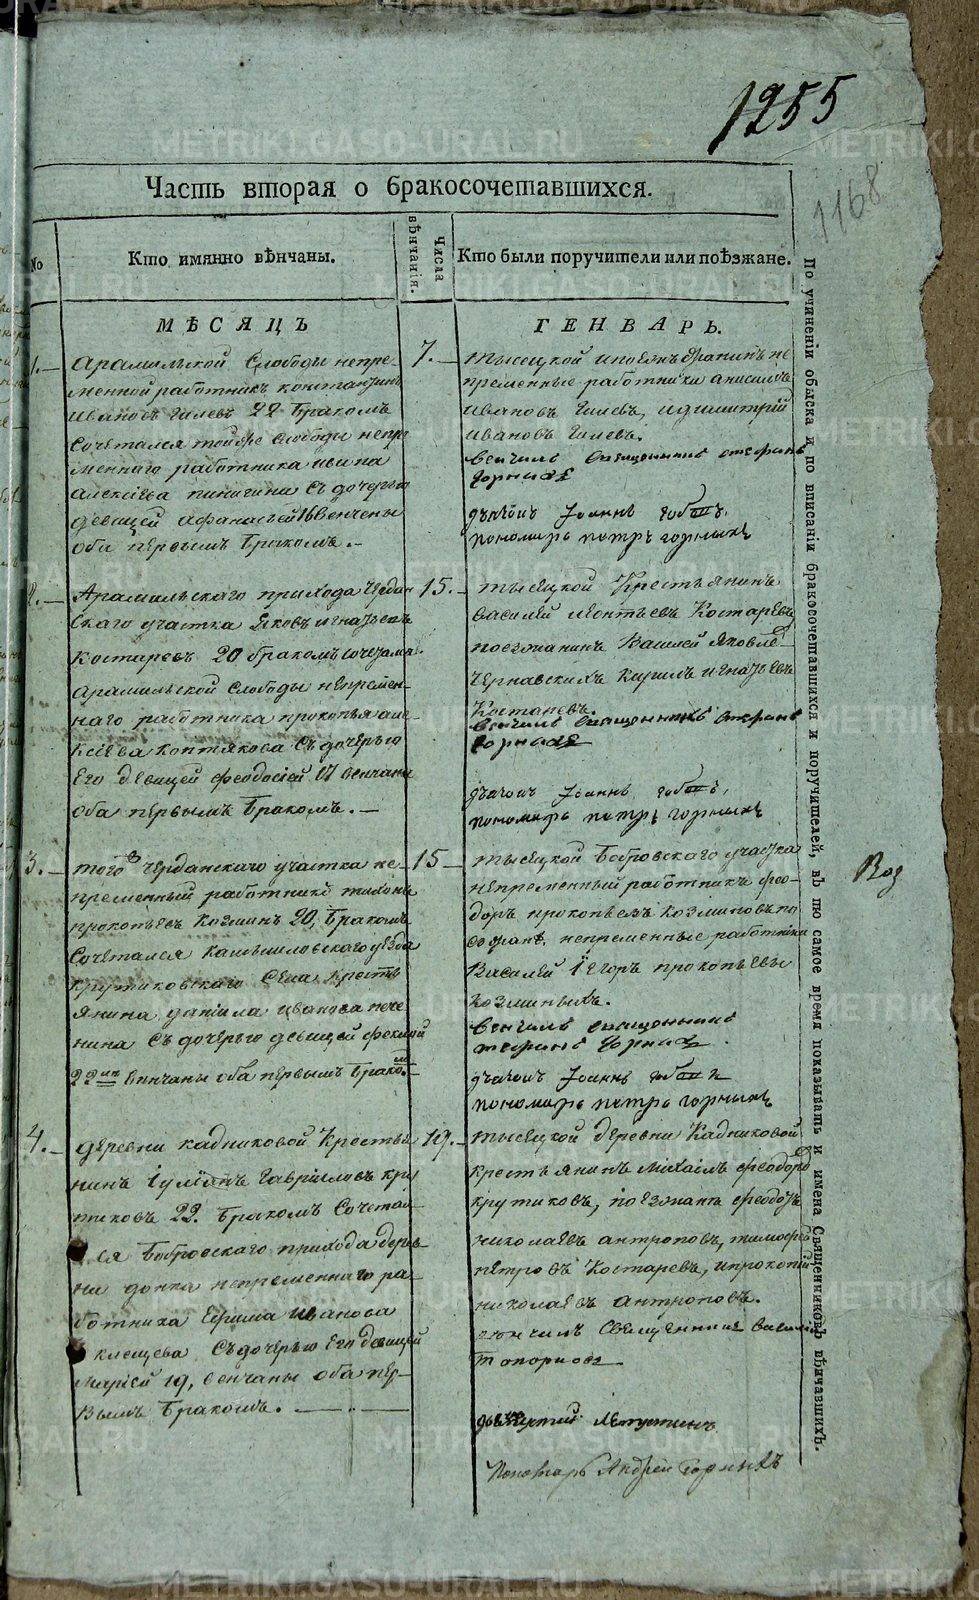 1255
1168
Часть вторая о бракосочетавшихся.
№
Кто имянно вѣнчаны.
Числа вѣнчанія.
Кто были поручители или поѣзжане.
МѢСЯЦЪ
ГЕНВАРЬ.
1.
Арамильской Слободы непре-
менной работникъ константинъ
Ивановъ Гилевъ 22 Бракомъ
сочетался тойже слободы непре
меннаго работника
алексѣева пинигина съ дочерью
девицей афанасьей 16 венчены
оба первымъ бракомъ.
7.
тысецкой
пременные работники анисимъ
Ивановъ Гилевъ, идимитрій
Ивановъ Гилевъ.
венчилъ священникъ стефанъ
Горныхъ
дьячокъ Іоаннъ
пономарь петръ горныхъ
2.
Арамильскаго прихода
скаго участка Яковъ игнатьевъ
Костаревъ 20 бракомъ сочетался
арамильской слободы непремен-
наго работника прокопья але-
ксѣева коптякова съ дочерью
его девицей феодосіей 17 венчаны
оба первымъ бракомъ.
15.
тысецкой Крестьянинъ
василей леонтьевъ Костаревъ
поезжанинъ Василей Яковле
чернавскихъ кирилъ игнатьевъ
Костаревъ.
венчилъ священникъ стефанъ
горныхъ
дьячокъ Іоаннъ
пономарь петръ горныхъ
3.
того чердынскаго участка не-
пременный работникъ тихонъ
прокопьевъ Козминъ 20, бракомъ
сочетался камышловскаго уезда
крутиковскаго села крестъ
янина данила иванова пече
нина съ дочерью девицей феклой
22 венчаны оба первымъ бракомъ
15
тысецкой бобровскаго участка
непременный работникъ фео-
доръ прокопьевъ козминовъ по
езжане, непременные работники
Василей і егоръ прокопьевы
козминыхъ.
венчилъ священникъ
стефанъ Горныхъ
дьячокъ Іоаннъ
пономарь петръ горныхъ
4.
деревни кадниковой крестья
нинъ іуліанъ гавриловъ кру
тиковъ 22. бракомъ сочетал-
ся бобровскаго прихода дерев-
ни донка непременнаго ра-
ботника ефима иванова
клещева съ дочерью его девицей
маріей 19, венчаны оба пер-
вымъ бракомъ.
19.
тысецкой деревни Кадниковой
крестьянинъ михаилъ феодоро
крутиковъ, поезжана феодотъ
николаевъ антроповъ, тимофей
петровъ Костаревъ, ипрокопий
николаевъ антроповъ.
венчилъ священникъ василій
топорковъ
Пономарь Андрей Горныхъ
По учиненіи обыска и по вписаніи бракосочетавшихся и поручителей, въ то самое время показывать и имена Священниковъ вѣнчавшихъ.
METRIKI.GASO-URAL.RU